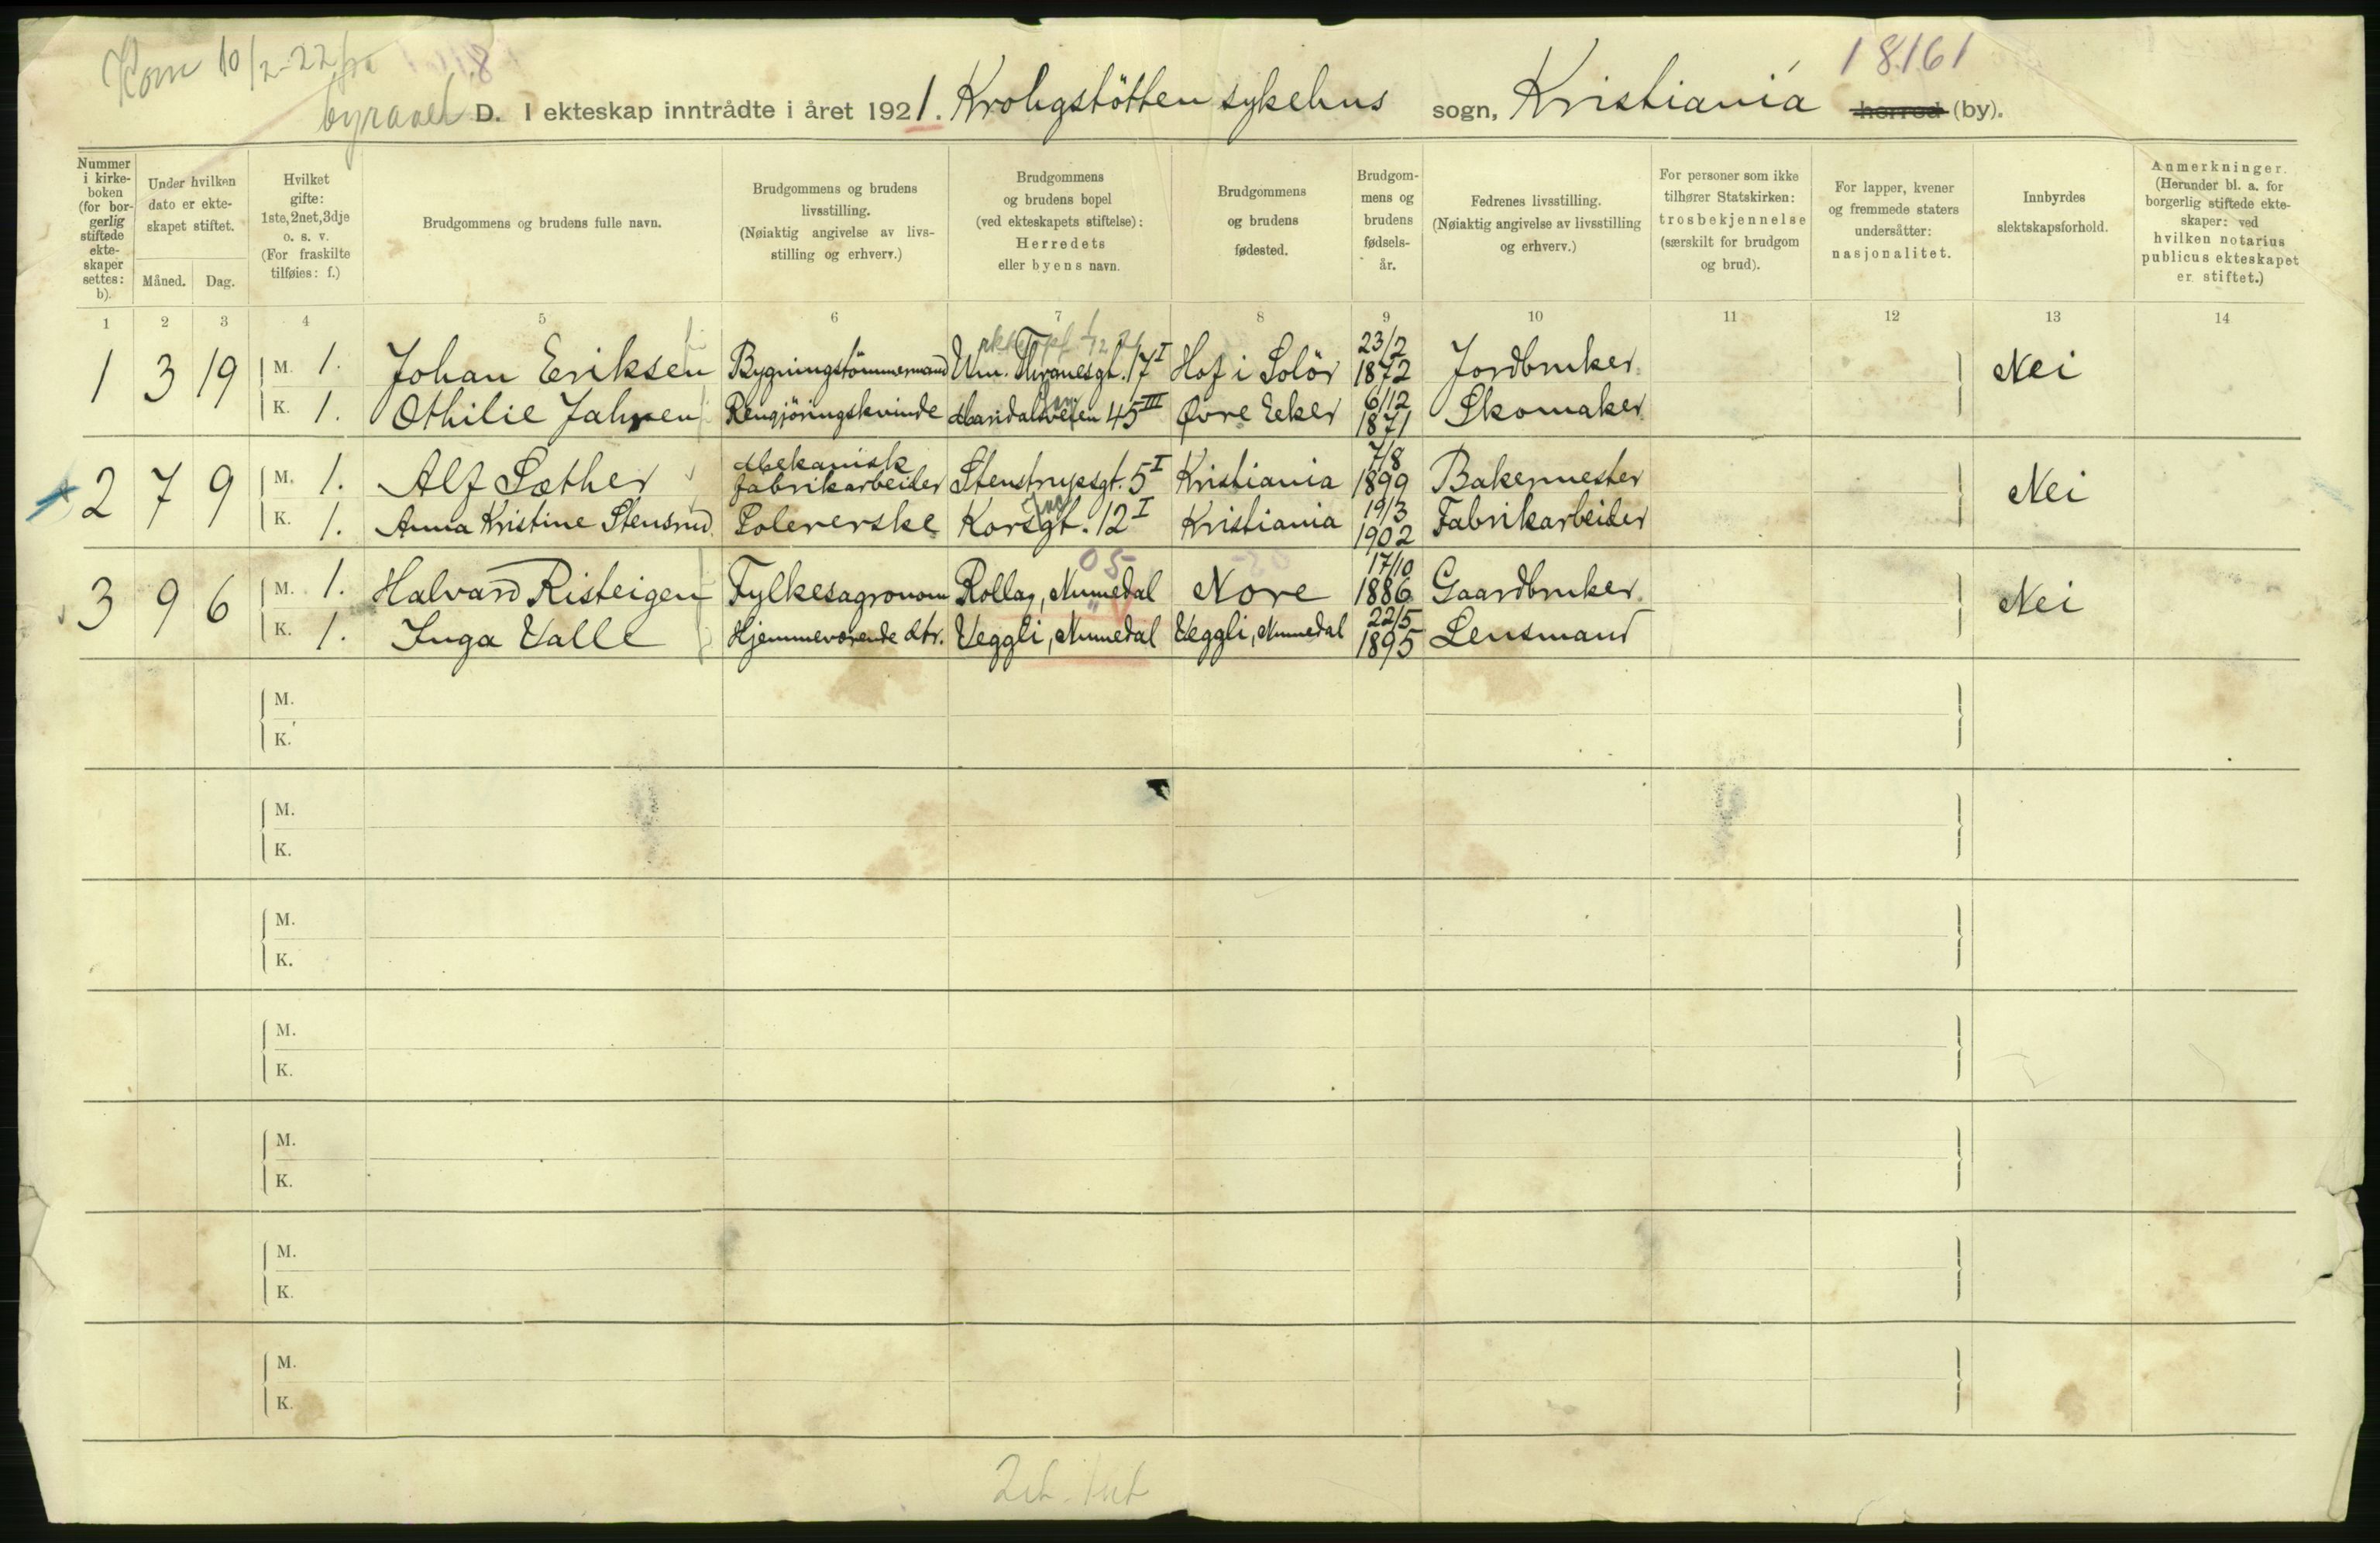 Kom 10/2-22 fra
18161
D. I ekteskap inntrådte i året 1921. Krohgstötten sykehus sogn, Kristiania herred (by).
Nummer i kirkeboken (for borgerlig stiftede ekteskaper settes: b).
Under hvilken dato er ekteskapet stiftet.
Måned. Dag.
Hvilket gifte: 1ste, 2net, 3dje o. s. v. (For fraskilte tilføies: f.)
Brudgommens og brudens fulle navn.
Brudgommens og brudens livsstilling. (Nøiaktig angivelse av livsstilling og erhverv.)
Brudgommens og brudens bopel (ved ekteskapets stiftelse): Herredets eller byens navn.
Brudgommens og brudens fødested.
Brudgommens og brudens fødselsår.
Fedrenes livsstilling. (Nøiaktig angivelse av livsstilling og erhverv.)
For personer som ikke tilhører Statskirken: trosbekjennelse (særskilt for brudgom og brud).
For lapper, kvener og fremmede staters undersåtter: nasjonalitet.
Innbyrdes slektskapsforhold.
Anmerkninger. (Herunder bl. a. for borgerlig stiftede ekteskaper: ved hvilken notarius publicus ekteskapet er stiftet.)
1 2 3 4 5 6 7 8 9 10 11 12 13 14
1 3 19 M. 1. Johan Eriksen Bygningstömmermand Wm. Thranesgt. 17 I Hof i Solör 23/2 1872 Jordbruker Nei
K. 1. Othilie Jahren Rengjöringskvinde Maridalsveien 45 III Øvre Eeker 6/12 1871 Skomaker
2 7 9 M. 1. Alf Sæther Mekanisk fabrikarbeider Stenstrupsgt. 5 I Kristiania 7/8 1899 Bakermester Nei
K. 1. Anna Kristine Stensrud Polererske Korsgt. 12 I Kristiania 19/3 1902 Fabrikarbeider
05
3 9 6 M. 1. Halvard Risteigen Fylkesagronom Rollag, Numedal Nore 17/10 1886 Gaardbruker Nei
K. 1. Inga Valle Hjemmeværende dtr. Veggli, Numedal Veggli, Numedal 22/5 1895 Lensmand
M.
K.
M.
K.
M.
K.
M.
K.
M.
K.
M.
K.
M.
K.